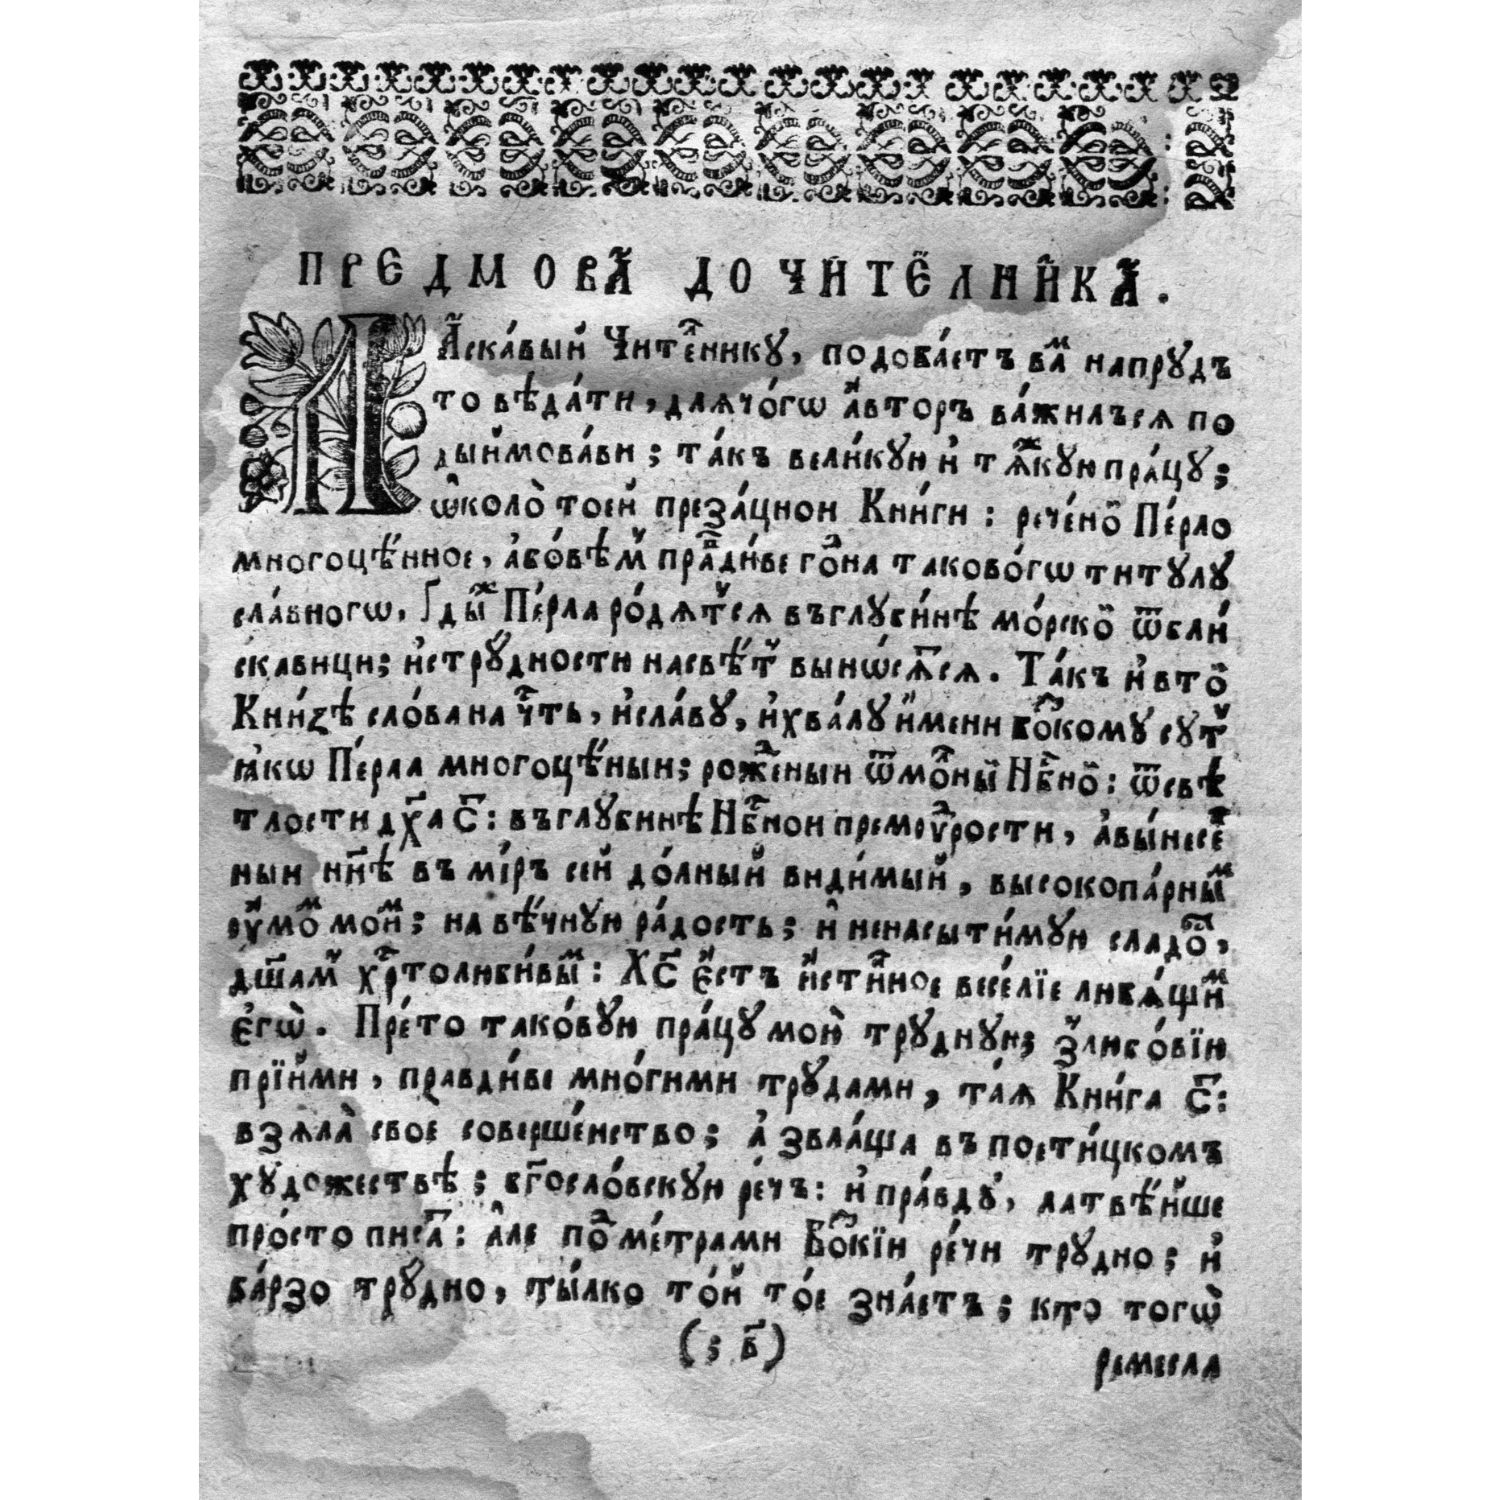 ПРЕДМОВА̀ ДО ЧИ́ТЕ́ЛНИ́КА̀.
ЛА̀скáвый Читéлнику, подобáетъ вáм напрудъ
то вѣдáти, длячо́гѡ áвторъ вáжилъся по
дыймовáви; тáкъ вели́кую и̓ тя́жкую прáцу;
ѡ҆коло̀ тоей презáцнои Кни́ги: речéной Пéрло
многоцѣ́нное, áбо́вѣм прáвди́ве го́дна таково́гѡ титулу
слáвногѡ, Гды́ж Пéрла ро́дятся въглуби́нѣ мо́рской ѿбли́
скавици; и̓струдности насвѣ́т вынѡ́сятся. Тáкъ и̓вто́й
Кни́зѣ слóва на чть, и̓слáву, и̓хвáлу и́мени бо́зкому сут
ꙗкѡ Пéрла многоцѣ́ныи; рожéныи ѿмо́лныи Нб҃ной: ѿсвѣ
тлости дх҃а С҃: въглубинѣ Нб҃нои премꙋдрости, áвы́несе
ныи нн҃ѣ въ мíръ сей до́лный види́мый, высокопáрным
ꙋмо́м мои́м; на вѣ́чную рáдость; и̓ ненасыти́мую сладо́ст,
дш҃ам хр҃толюби́вым: Х҃С éстъ и́сти́нное весéлїе лю́бящим
éгѡ̀. Прéто тако́вую прáцу мою̀ трудную; з̾люво́вїю
прїйми, правди́ве мно́гими трудами, тáя Кни́га С҃:
взяла̀ своè совершéнство; á звлáща въ поети́цкомъ
художествѣ; бг҃осло́вскую рéчъ: и̓ прáвду, латвѣ́йше
прóсто писáт: áле по́д мéтрами Бо́зкїи рéчи трудно; и̓
бáрзо трудно, ты́лко то́й то́е знáетъ; кто тогѡ̀
(; в҃)
ремесла